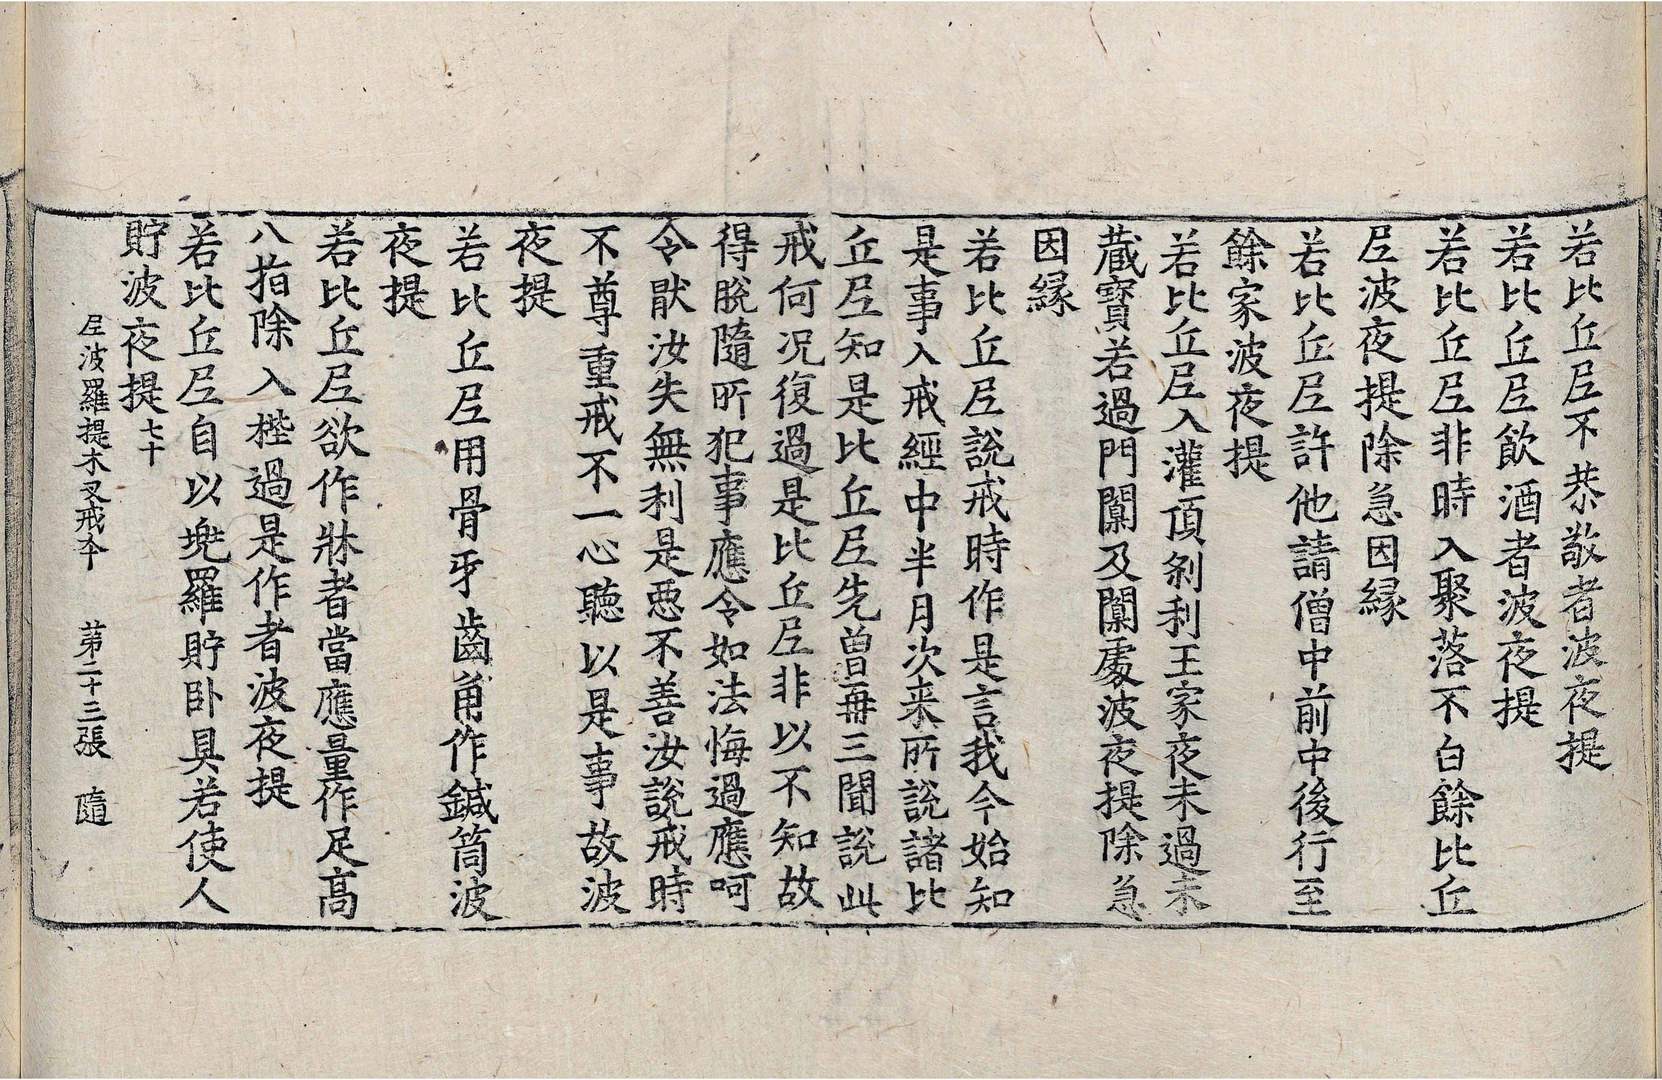 若比丘尼不恭敬者波夜提
若比丘尼飲酒者波夜提
若比丘尼非時入聚落不白餘比丘
尼波夜提除急因緣
若比丘尼許他請僧中前中後行至
餘家波夜提
若比丘尼入灌頂剎利王家夜未過未
藏寶若過門闑及闑處波夜提除急
因緣
若比丘尼說戒時作是言我今始知
是事入戒經中半月次来所說諸比
丘尼知是比丘尼先曾再三聞說此
戒何況復過是比丘尼非以不知故
得脫隨所犯事應令如法悔過應呵
令猒汝失無利是惡不善汝說戒時
不尊重戒不一心聽以是事故波
夜提
若比丘尼用骨牙齒角作鍼筒波
夜提
若比丘尼欲作牀者當應量作足高
八指除入梐過是作者波夜提
若比丘尼自以兠羅貯卧具若使人
貯波夜提七十
尼波羅提木叉戒本 苐二十三張 隨